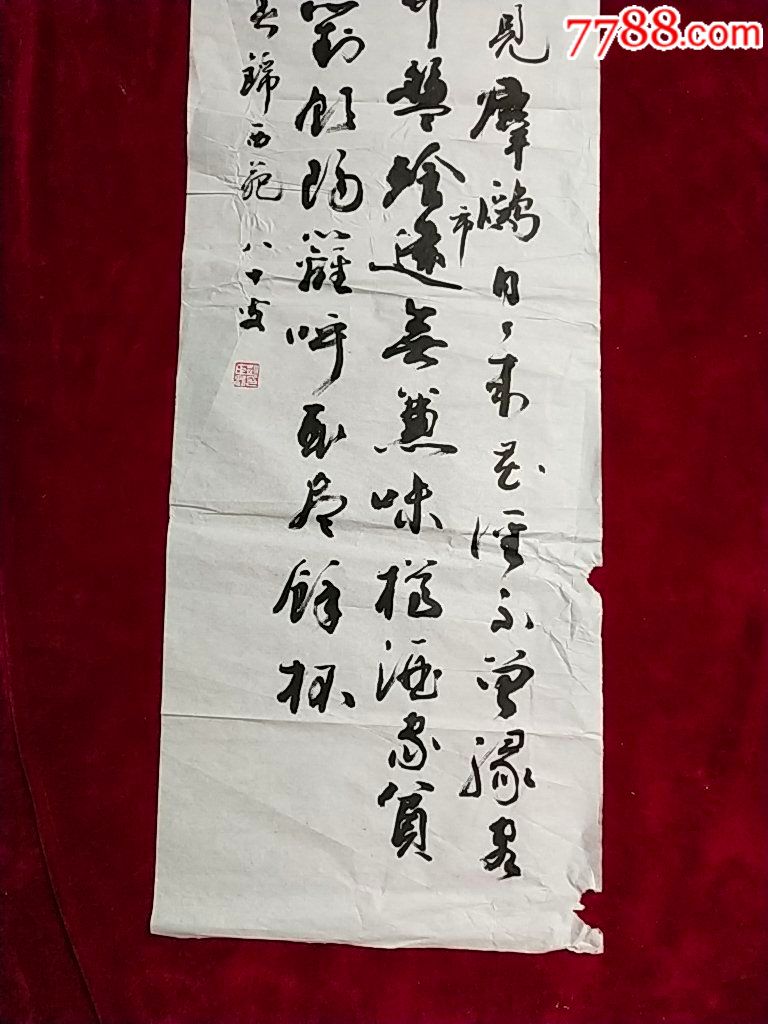 7788.com
見羣鷗日〻来花徑不曾緣客
盤飱遠無兼味樽酒家貧
市
對飲隔籬呼取盡餘杯
錦西苑八十叟